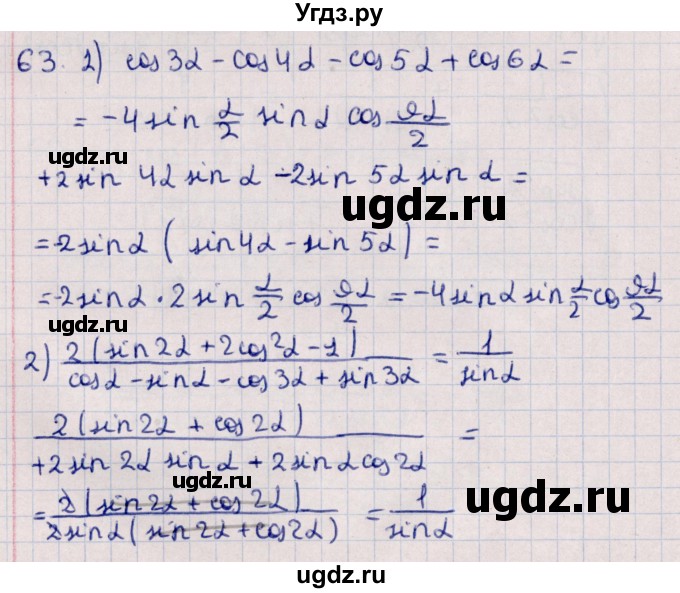 Угдз.ру
63. 1) cos 3α - cos 4α - cos 5α + cos 6α =
= -4 sin α/2 sin α cos 9α/2
ugdz.ru
ugdz.ru
+2 sin 4α sin α - 2 sin 5α sin α =
ugdz.ru
= -2 sin α ( sin 4α - sin 5α ) =
= -2 sin α · 2 sin α/2 cos 9α/2 = -4 sin α sin α/2 cos 9α/2
ugdz.ru
2) 2(sin 2α + 2cos²α - 1) / cos α - sin α - cos 3α + sin 3α = 1/sin α
2(sin 2α + cos 2α) / +2 sin 2α sin α + 2 sin α cos 2α =
ugdz.ru
= 2(sin 2α + cos 2α) / 2 sin α (sin 2α + cos 2α) = 1/sin α
ugdz.ru
ugdz.ru